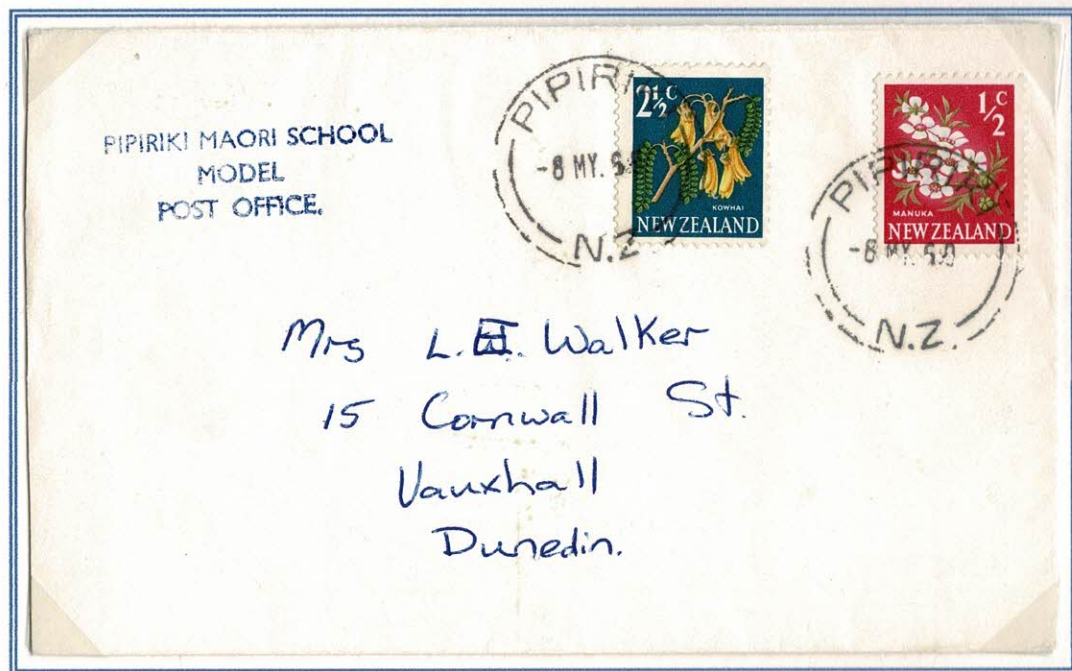 PIPIRIKI MAORI SCHOOL
MODEL
POST OFFICE.
2½c
KOWHAI
NEW ZEALAND
½c
MANUKA
NEW ZEALAND
-8 MY.
N.Z
-8 MY.
N.Z.
Mrs L. Walker
15 Cornwall St.
Vauxhall
Dunedin.